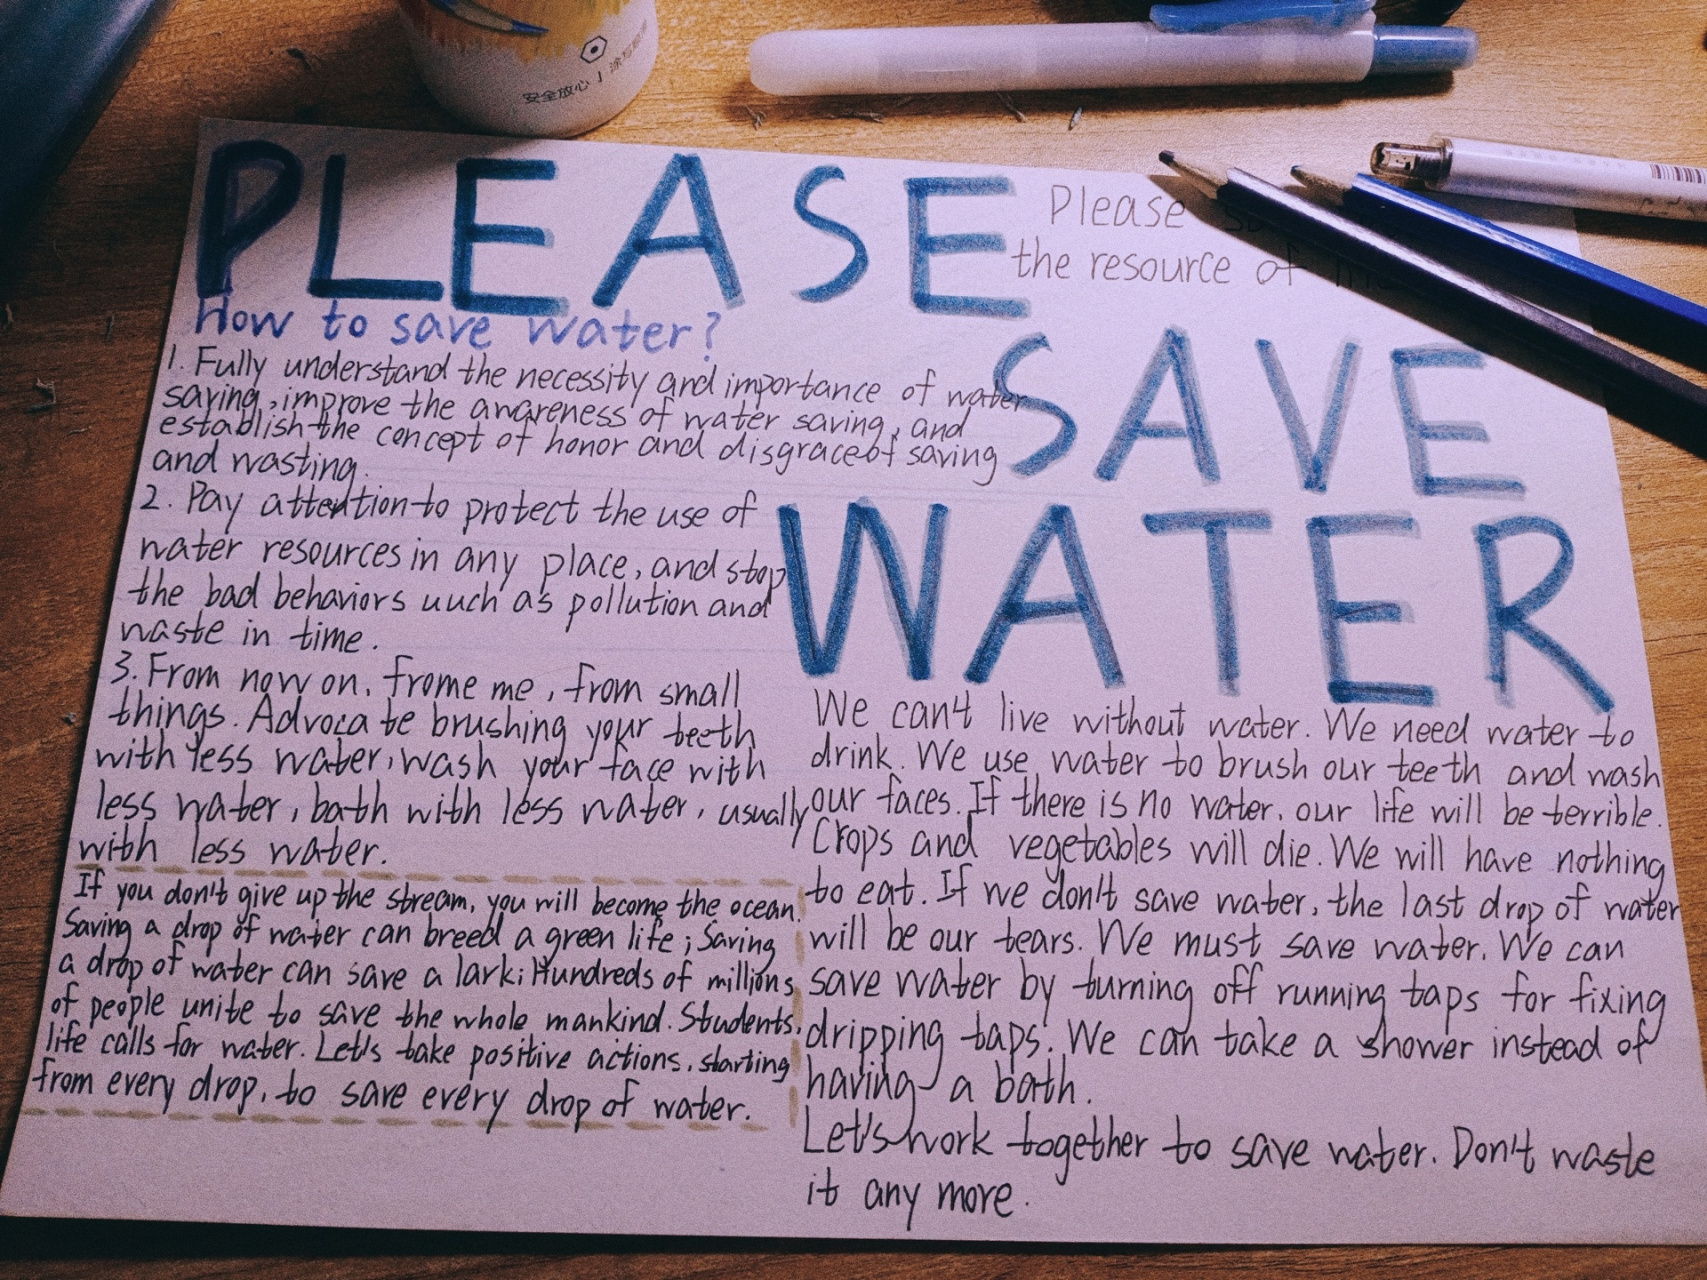 安全放心
PLEASE
Please
the resource of
SAVE
WATER
How to save water?
1. Fully understand the necessity and importance of water
saving, improve the awareness of water saving, and
establish the concept of honor and disgrace of saving
and wasting.
2. Pay attention to protect the use of
water resources in any place, and stop
the bad behaviors uuch as pollution and
waste in time.
3. From now on, frome me, from small
things. Advocate brushing your teeth
with less water, wash your face with
less water, bath with less water, usually
with less water.
If you don't give up the stream, you will become the ocean.
Saving a drop of water can breed a green life; Saving
a drop of water can save a lark; Hundreds of millions
of people unite to save the whole mankind. Students,
life calls for water. Let's take positive actions, starting
from every drop, to save every drop of water.
We can't live without water. We need water to
drink. We use water to brush our teeth and wash
our faces. If there is no water, our life will be terrible.
Crops and vegetables will die. We will have nothing
to eat. If we don't save water, the last drop of water
will be our tears. We must save water. We can
save water by turning off running taps for fixing
dripping taps. We can take a shower instead of
having a bath.
Let's work together to save water. Don't waste
it any more.